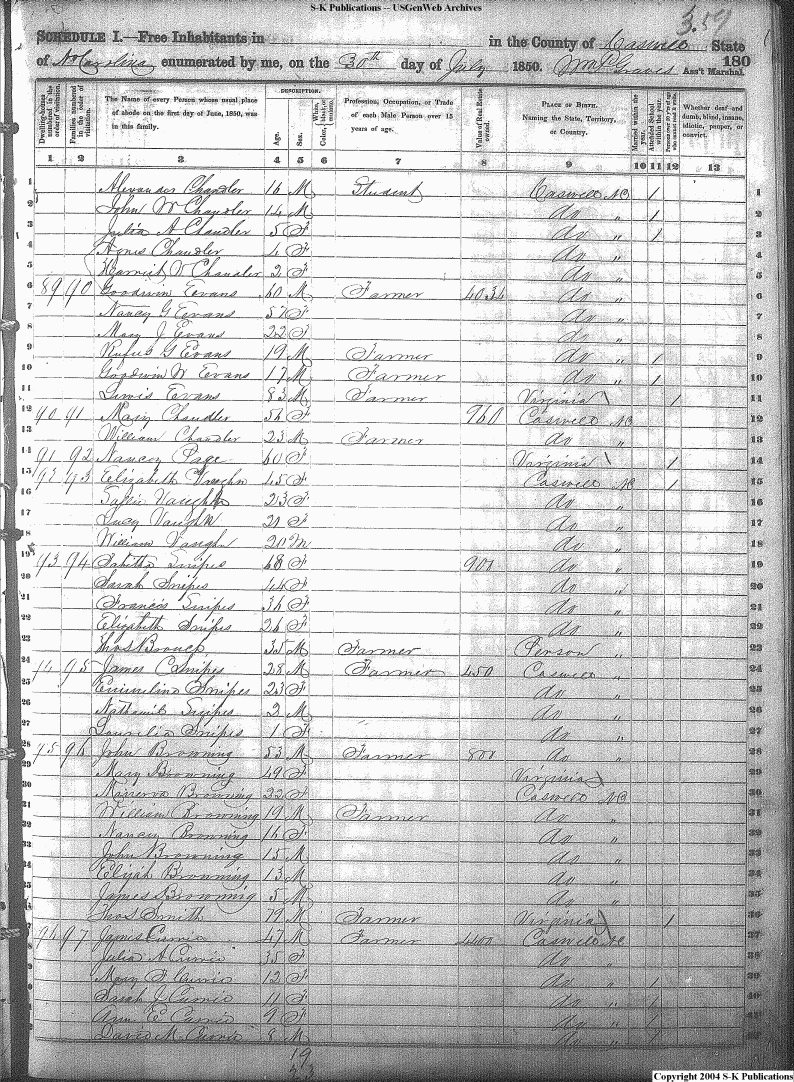 S-K Publications -- USGenWeb Archives
359
SCHEDULE I.—Free Inhabitants in in the County of Caswell State
of N Carolina enumerated by me, on the 30th day of July 1850. Wm Graves Ass't Marshal. 180
Dwelling-houses numbered in the order of visitation.
Families numbered in the order of visitation.
The Name of every Person whose usual place of abode on the first day of June, 1850, was in this family.
DESCRIPTION.
Age.
Sex.
White, black, or mulatto. Color,
Profession, Occupation, or Trade of each Male Person over 15 years of age.
Value of Real Estate owned.
PLACE OF BIRTH. Naming the State, Territory, or Country.
Married within the year.
Attended School within the year.
Persons over 20 y'rs of age who cannot read & write.
Whether deaf and dumb, blind, insane, idiotic, pauper, or convict.
1 2 3 4 5 6 7 8 9 10 11 12 13
1 Alexander Chandler 16 M Student Caswell NC / 1
2 John W Chandler 14 M do " / 2
3 Julia A Chandler 5 F do " / 3
4 Agnes Chandler 4 F do " 4
5 Harriet W Chandler 2 F do " 5
6 89 90 Goodwin Evans 60 M Farmer 4034 do " 6
7 Nancy G Evans 57 F do " 7
8 Mary J Evans 22 F do " 8
9 Rufus G Evans 19 M Farmer do " / 9
10 Goodwin W Evans 17 M Farmer do " / 10
11 Lewis Evans 83 M Farmer Virginia / 11
12 90 91 Mary Chandler 56 F 960 Caswell NC 12
13 William Chandler 23 M Farmer do " 13
14 91 92 Nancy Page 60 F Virginia / 14
15 92 93 Elizabeth Vaughn 45 F Caswell NC / 15
16 Sallie Vaughn 23 F do " 16
17 Lucy Vaughn 21 F do " 17
18 William Vaughn 20 M do " 18
19 93 94 Tabitha Snipes 68 F 901 do " 19
20 Sarah Snipes 44 F do " 20
21 Francis Snipes 36 F do " 21
22 Elizabeth Snipes 26 F do " 22
23 Thos 35 M Farmer Person " 23
24 94 95 James C Snipes 28 M Farmer 450 Caswell " 24
25 Emmeline Snipes 23 F do " 25
26 Nathaniel Snipes 2 M do " 26
27 Snipes 1 F do " 27
28 95 96 John Browning 53 M Farmer 800 do " 28
29 Mary Browning 49 F Virginia 29
30 Minerva Browning 22 F Caswell NC 30
31 William Browning 19 M Farmer do " 31
32 Nancy Browning 16 F do " 32
33 John Browning 15 M do " 33
34 Elijah Browning 13 M do " 34
35 James Browning 5 M do " 35
36 Thos Smith 79 M Farmer Virginia / 36
37 96 97 James Currie 47 M Farmer 4400 Caswell NC 37
38 Julia A Currie 35 F do " 38
39 Mary F Currie 12 F do " / 39
40 Sarah J Currie 11 F do " / 40
Ann E Currie 9 F do " /
David M Currie 8 M do " /
19
23
Copyright 2004 S-K Publications